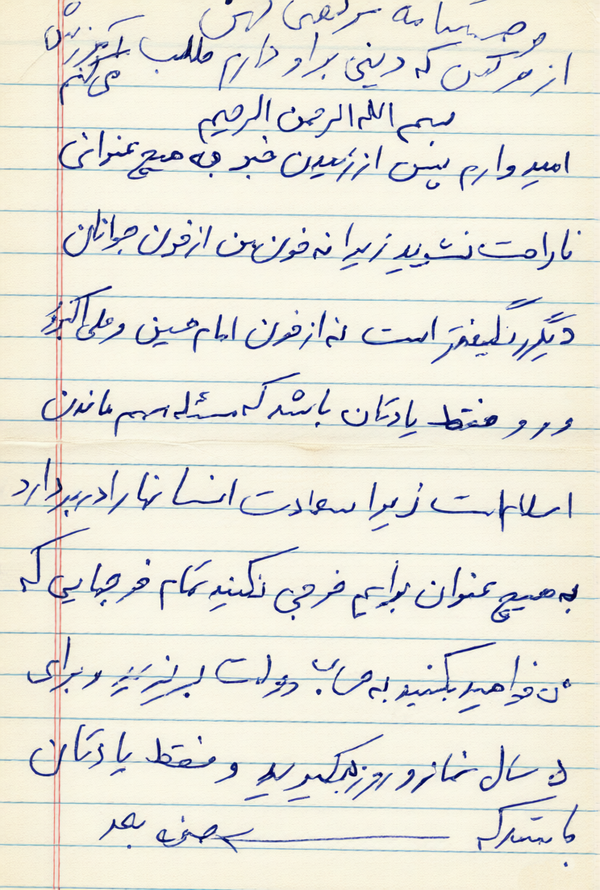 وصیتنامه مرتضی
از هر کس که دینی بر او دارم طلب آمرزش می‌کنم
بسم الله الرحمن الرحیم
امیدوارم پس از رسیدن خبر به هیچ عنوانی
ناراحت نشوید زیرا نه خون من از خون جوانان
دیگر رنگینتر است نه از خون امام حسین و علی اکبر
و و و فقط یادتان باشد که مسئله مهم ماندن
اسلام است زیرا سعادت انسانها را در بر دارد
به هیچ عنوان برایم خرجی نکنید تمام خرجهایی که
می خواهید بکنید به حساب دولت بریزید و برای
۵ سال نماز و روزه بگیرید و فقط یادتان
باشد که صفحه بعد